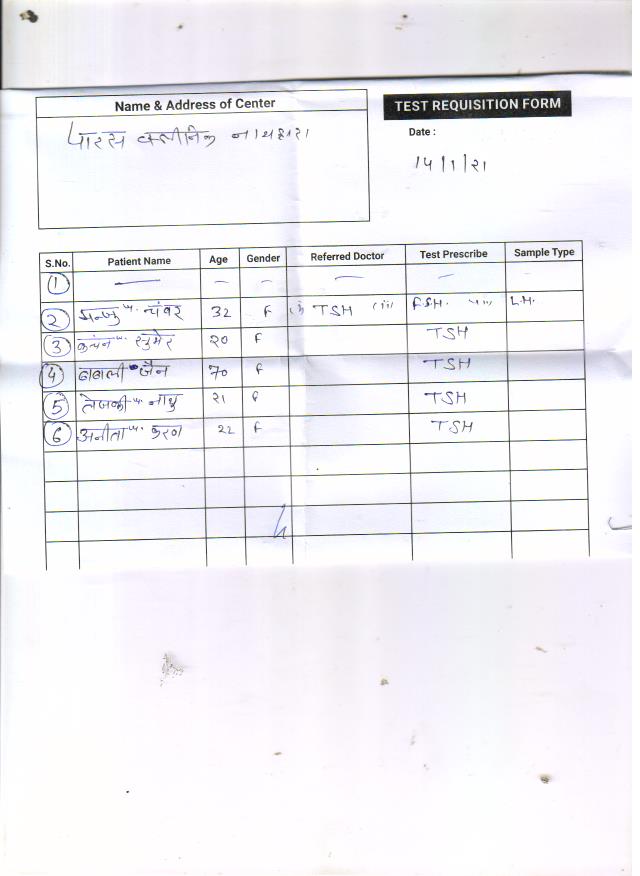 Name & Address of Center
TEST REQUISITION FORM
पारस क्लीनिक नाथद्वारा
Date :
14/1/21
S.No. Patient Name Age Gender Referred Doctor Test Prescribe Sample Type
1 — — — — — -
2 मन्जु w. चंवर 32 F (i) TSH (ii) F.S.H. (iii) L.H.
3 कंचन w. सुमेर 20 F TSH
4 जैन 70 F TSH
5 w. नाथु 21 F TSH
6 अनीता w. करण 22 F TSH